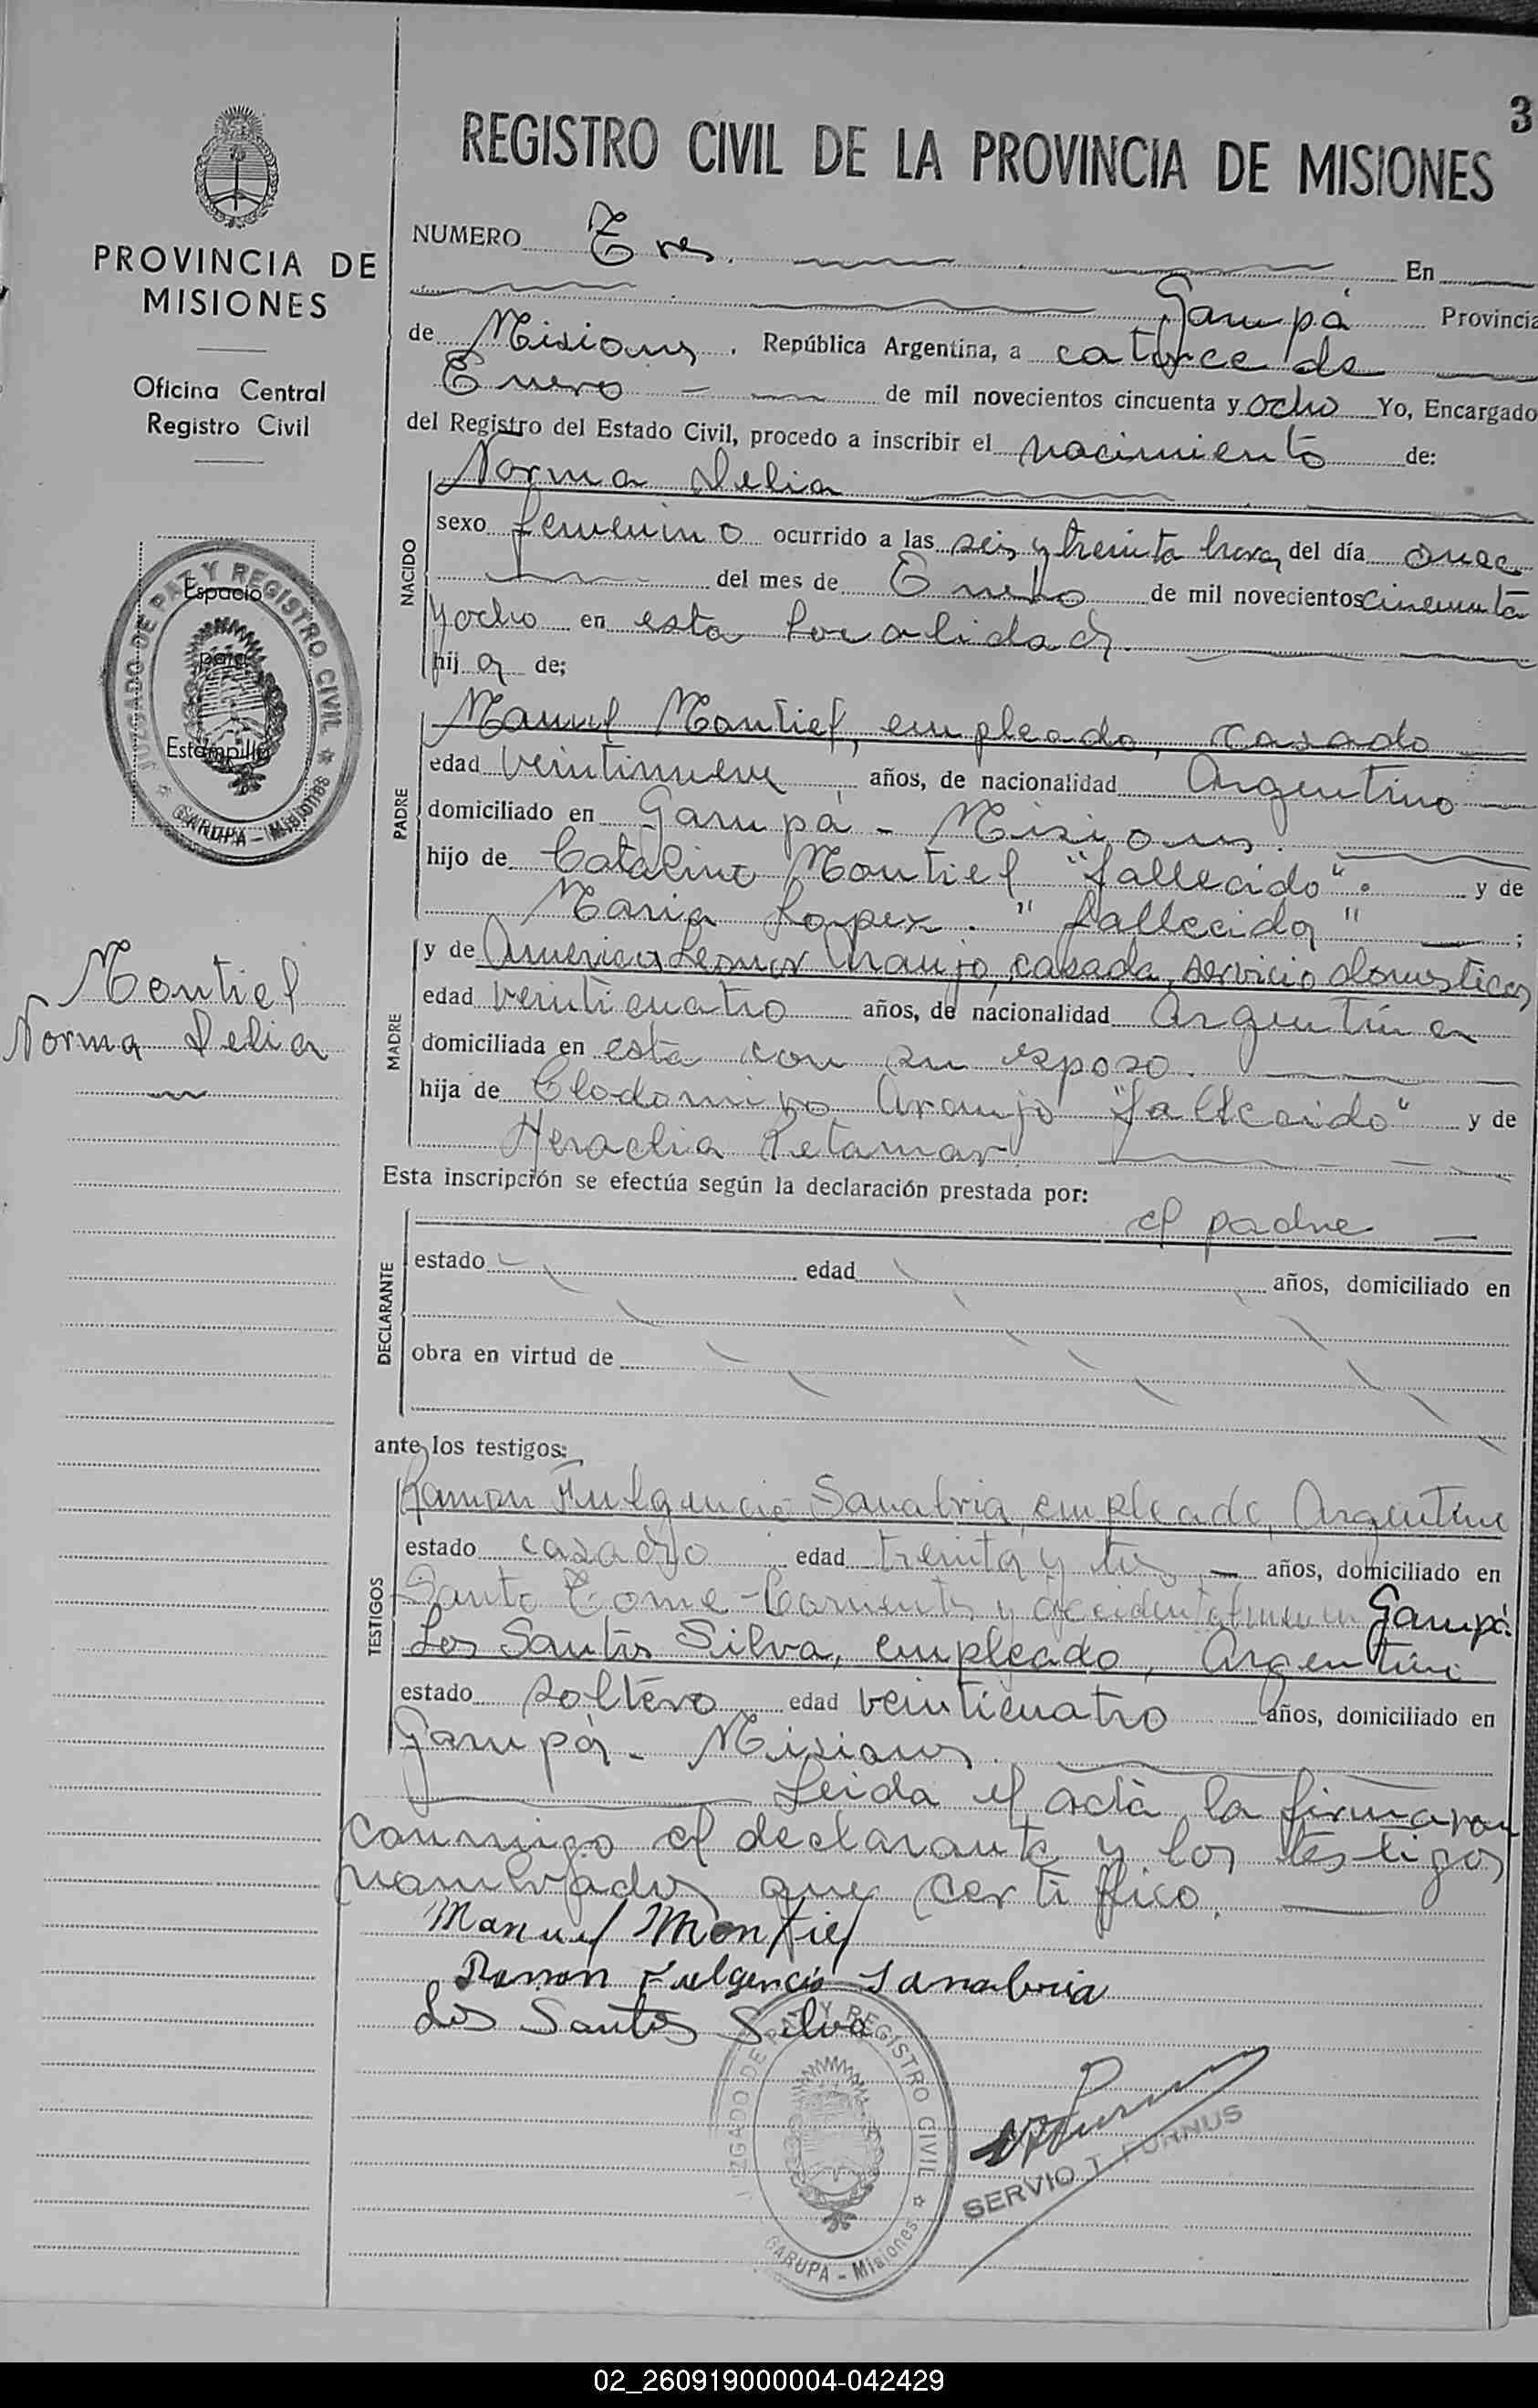 3
REGISTRO CIVIL DE LA PROVINCIA DE MISIONES
PROVINCIA DE
MISIONES
Oficina Central
Registro Civil
JUZGADO DE PAZ Y REGISTRO CIVIL
GARUPA - Misiones
Espacio
para
Estampilla
Montiel
Norma Delia
NUMERO Tres. En
Garupá Provincia
de Misiones. República Argentina, a catorce de
Enero de mil novecientos cincuenta y ocho Yo, Encargado
del Registro del Estado Civil, procedo a inscribir el nacimiento de:
NACIDO
Norma Delia
sexo femenino ocurrido a las seis y treinta horas del día once
del mes de Enero de mil novecientos cincuenta
y ocho en esta localidad.
hija de;
PADRE
Manuel Montiel, empleado, casado
edad veintinueve años, de nacionalidad Argentino
domiciliado en Garupá - Misiones.
hijo de Catalino Montiel "fallecido". y de
Maria Lopez. "fallecida" ;
MADRE
y de America Leonor Araujo, casada, servicio domesticos
edad veinticuatro años, de nacionalidad Argentina
domiciliada en esta con su esposo.
hija de Clodomiro Araujo "fallecido" y de
Heraclia Retamar.
Esta inscripción se efectúa según la declaración prestada por:
DECLARANTE
el padre
estado edad años, domiciliado en
obra en virtud de
ante los testigos:
TESTIGOS
Ramon Fulgencio Sanabria, empleado, Argentino
estado casado edad treinta y tres años, domiciliado en
Santo Tome - Corrientes y accidentalmente en Garupá.
Los Santos Silva, empleado, Argentino
estado soltero edad veinticuatro años, domiciliado en
Garupá - Misiones.
Leida el acta, la firmaron
conmigo el declarante y los testigos
nombrados que certifico.
Manuel Montiel
Ramon Fulgencio Sanabria
Los Santos Silva
ZGADO DE PAZ Y REGISTRO CIVIL
GARUPA - Misiones
SERVIO T. FURNUS
02_260919000004-042429